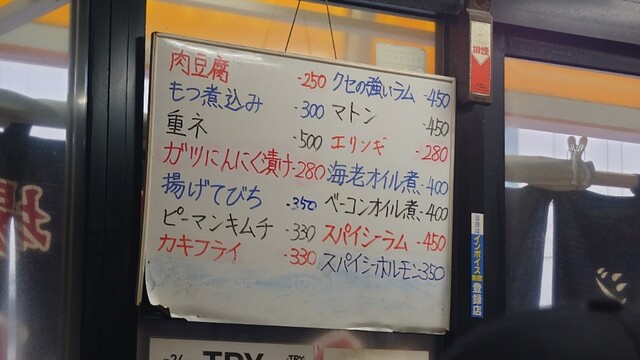 肉豆腐 -250
もつ煮込み -300
重ネ -500
ガツにんにく漬け-280
揚げてびち -350
ピーマンキムチ -330
カキフライ -330
クセの強いラム -450
マトン -450
エリンギ -280
海老オイル煮-400
ベーコンオイル煮-400
スパイシーラム -450
スパイシーホルモン350
排煙
インボイス
登録店
TRY